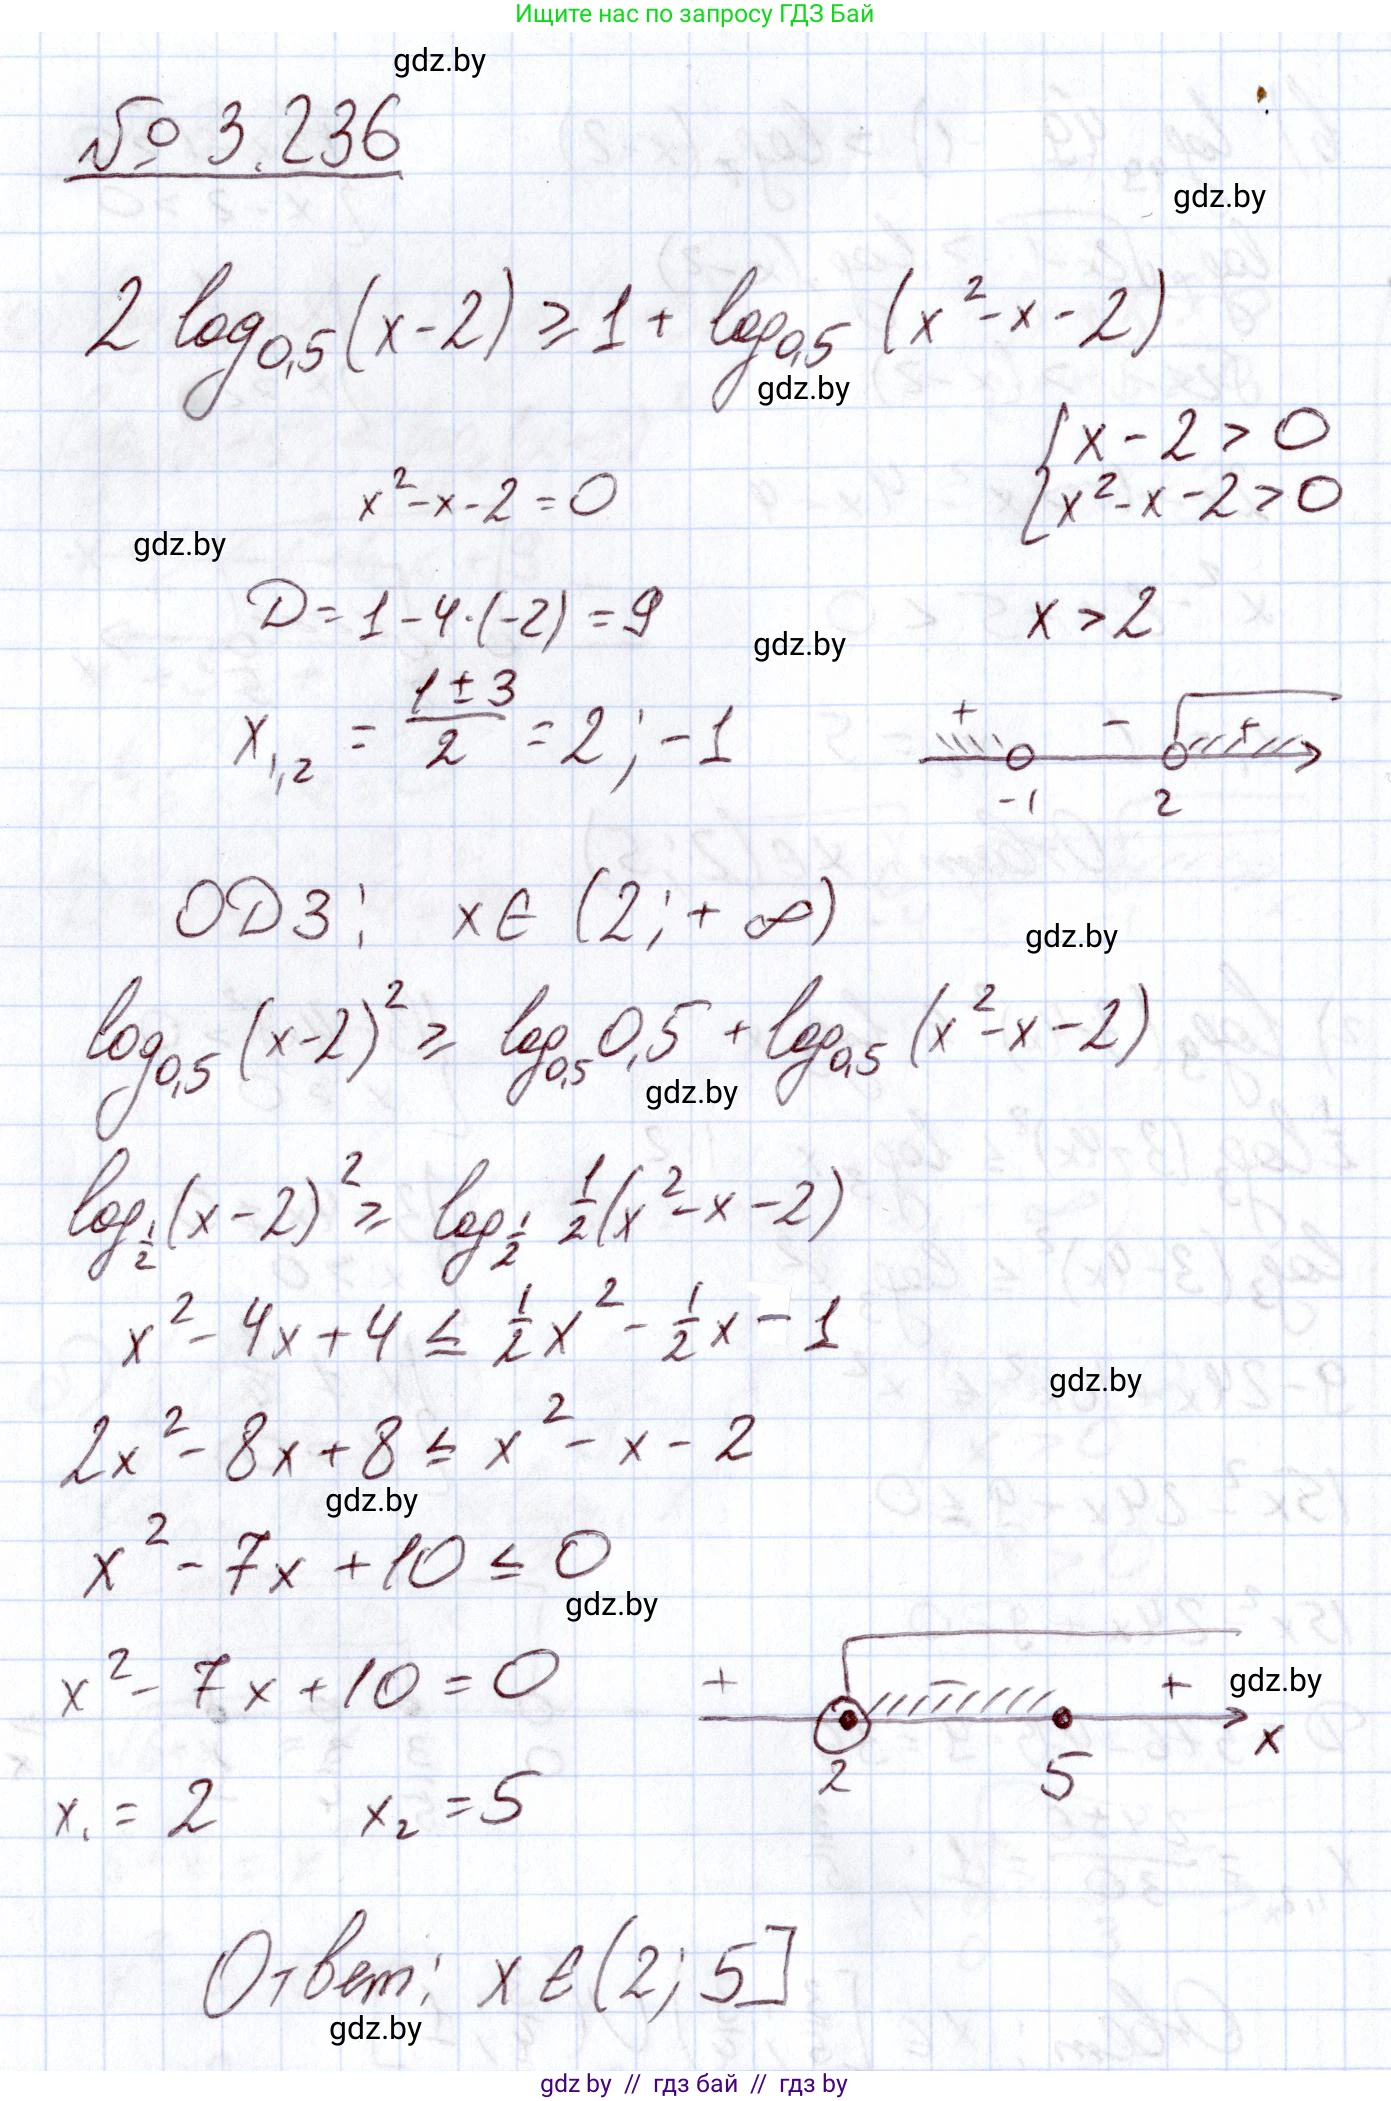 Ищите нас по запросу ГДЗ Бай
gdz.by
№ 3.236
gdz.by
2 log₀,₅(x-2) ≥ 1 + log₀,₅ (x²-x-2)
gdz.by
{x-2>0
x²-x-2=0
{x²-x-2>0
gdz.by
D=1-4·(-2)=9
x>2
gdz.by
x₁,₂ = (1±3)/2 = 2; -1
+ - +
-1 2
ОДЗ: x∈(2;+∞)
gdz.by
log₀,₅(x-2)² ≥ log₀,₅ 0,5 + log₀,₅ (x²-x-2)
gdz.by
log_{1/2}(x-2)² ≥ log_{1/2} 1/2(x²-x-2)
x²-4x+4 ≤ 1/2x² - 1/2x - 1
gdz.by
2x²-8x+8 ≤ x²-x-2
gdz.by
x²-7x+10 ≤ 0
gdz.by
x²-7x+10=0
+ - +
gdz.by
2 5 x
x₁=2 x₂=5
Ответ: x∈(2;5]
gdz.by
gdz by // гдз бай // гдз by